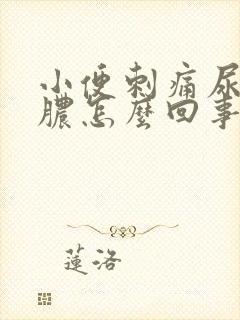 小便刺痛尿
膿怎麼回事
蓮洛